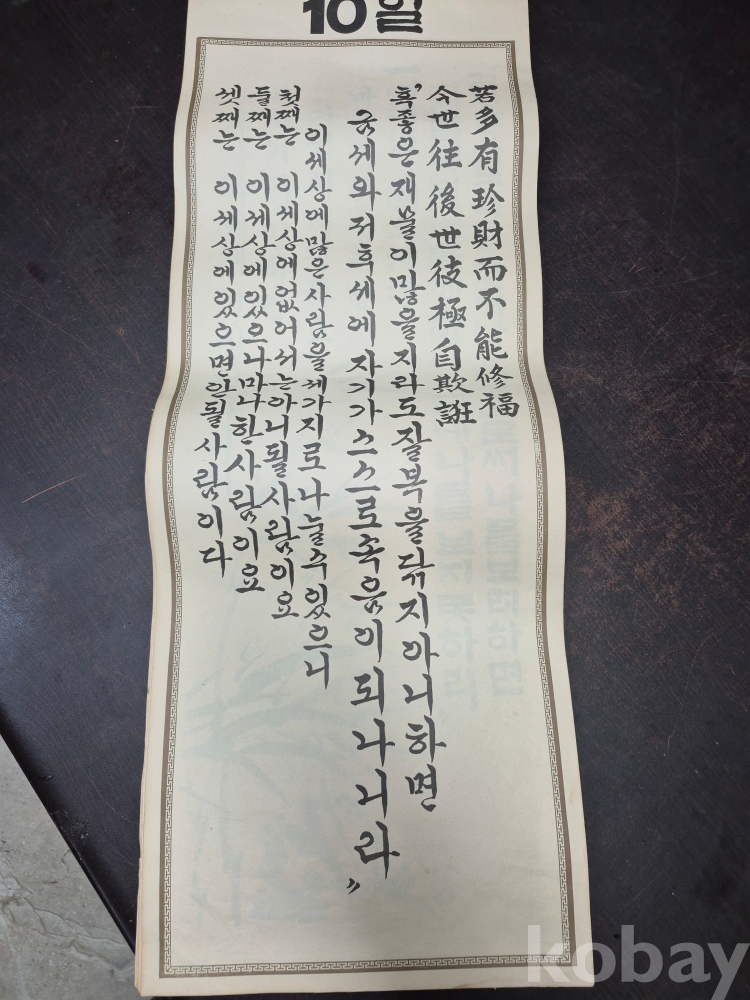 10일
若多有珍財而不能修福
今世往後世彼極自欺誑
"혹좋은재물이많을지라도잘복을닦지아니하면
금세와저후세에자기가스스로속음이되나니라"
이세상에많은사람을세가지로나눌수있으니
첫째는 이세상에없어서는아니될사람이요
둘째는 이세상에있으나마나한사람이요
셋째는 이세상에있으면안될사람이다
kobay